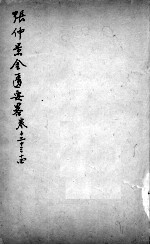 張仲景金匱要畧卷